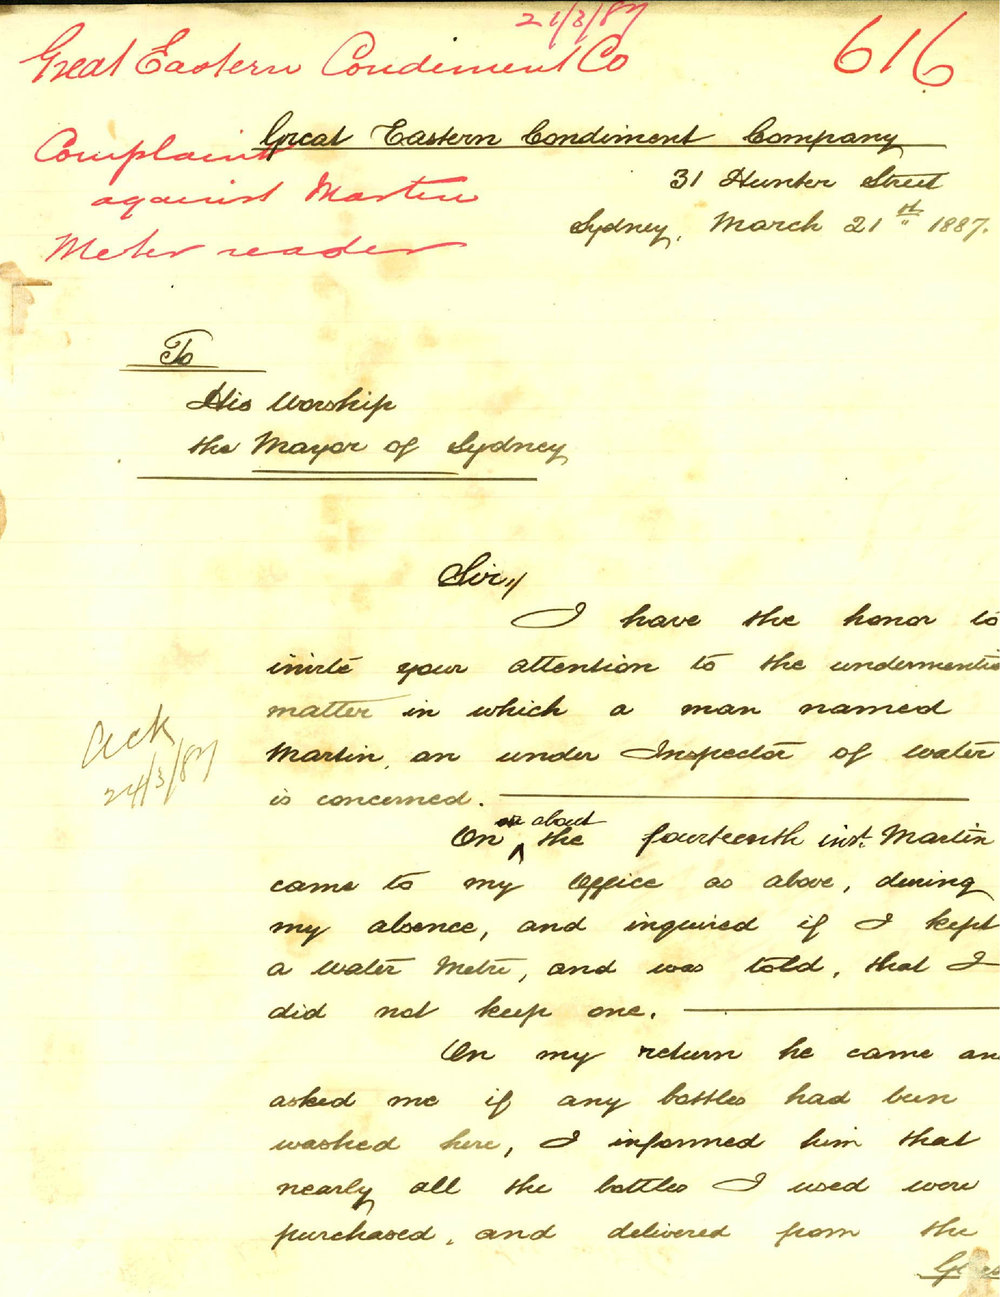 21/3/87
Great Eastern Condiment Co
616
Complaint
against Martin
Meter reader
Great Eastern Condiment Company
31 Hunter Street
Sydney, March 21st 1887.
To
His Worship
the Mayor of Sydney
Sir,
I have the honor to
invite your attention to the undermentio
matter in which a man named
Martin, an under Inspector of water
is concerned.
Ack
24/3/87
On or about the fourteenth inst. Martin
came to my Office as above, during
my absence, and inquired if I kept
a water Metre, and was told, that I
did not keep one.
On my return he came and
asked me if any bottles had been
washed here, I informed him that
nearly all the bottles I used were
purchased, and delivered from the